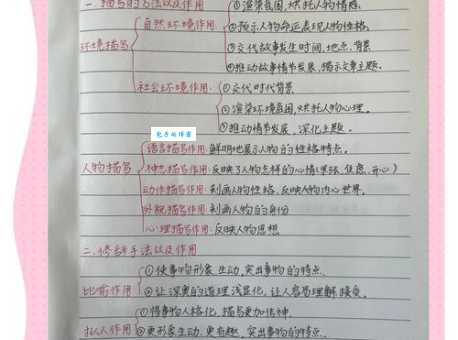 一.描写的方法以及作用
自然环境作用
①渲染氛围,烘托人物情感。
②预示人物命运,表现人物性格。
③交代故事发生时间、地点、背景
④推动故事情节发展,揭示文章主题。
环境描写
社会环境作用:①交代时代背景
②渲染环境氛围,烘托人物心理。
③推动情节发展,深化主题。
语言描写作用:鲜明地展示人物的性格特点。
人物描写
神态描写作用:反映了人物怎样的心情(焦急、开心)
动作描写作用:刻画人物性格,反映人物内心世界。
外貌描写作用:刻画人物的身份
心理描写作用:反映人物思想
二.修辞手法以及作用
①使事物形象生动,突出事物的特点。
比喻作用
②让深奥的道理浅显化,让人容易理解接受。
①将事物人格化,描写更加传神。
拟人作用
②更形象生动,更有趣,突出事物的特点。